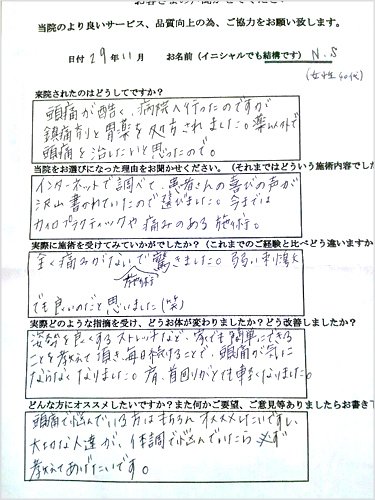 当院のより良いサービス、品質向上の為、ご協力をお願い致します。
日付 29年11月 お名前（イニシャルでも結構です） N.S
（女性40代）
来院されたのはどうしてですか？
頭痛が酷く、病院へ行ったのですが
鎮痛剤と胃薬を処方されました。薬以外で
頭痛を治したいと思ったので。
当院をお選びになった理由をお聞かせください。（それまではどういう施術内容でした
インターネットで調べて、患者さんの喜びの声が
沢山書かれていたので選びました。今までは
カイロプラクティックや痛みのある施術。
実際に施術を受けてみていかがでしたか？（これまでのご経験と比べどう違いますか
全く痛みがないで驚きました。弱い刺激
施術
でも良いのだと思いました（笑）
実際どのような指摘を受け、どうお体が変わりましたか？どう改善しましたか？
姿勢を良くするストレッチなど、家でも簡単にできる
ことを教えて頂き、毎日続けることで、頭痛が気に
ならなくなりました。肩、首回りがとても軽くなりました。
どんな方にオススメしたいですか？また何かご要望、ご意見等ありましたらお書き下
頭痛で悩んでいる方はもちろんオススメしたいですし、
大切な人達が、体調で悩んでいたら必ず
教えてあげたいです。